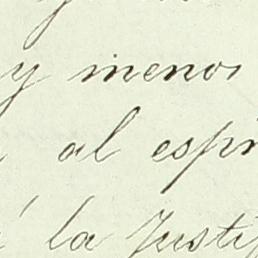 y menos
al espiri
á la Justi